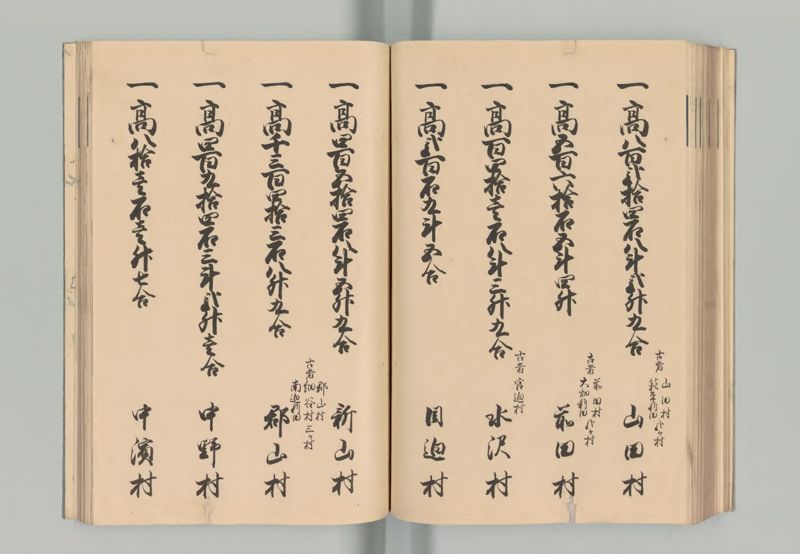 一高八百弐拾四石八斗弐升九合
古者 山田村
萩平新田 弐ヶ村
山田村
一高五百六拾石五斗四升
古者 前田村
大畑新田 弐ヶ村
前田村
一高百四拾壱石八斗三升九合
古者 宮迫村
水沢村
一高弐百石九斗五合
目迫村
一高四百五拾四石八斗五升九合
新山村
一高千三百四拾三石八升九合
郡山村
古者 細谷村 三ヶ村
南迫新田
郡山村
一高四百九拾四石三斗弐升壱合
中野村
一高八拾壱石壱升七合
中濱村